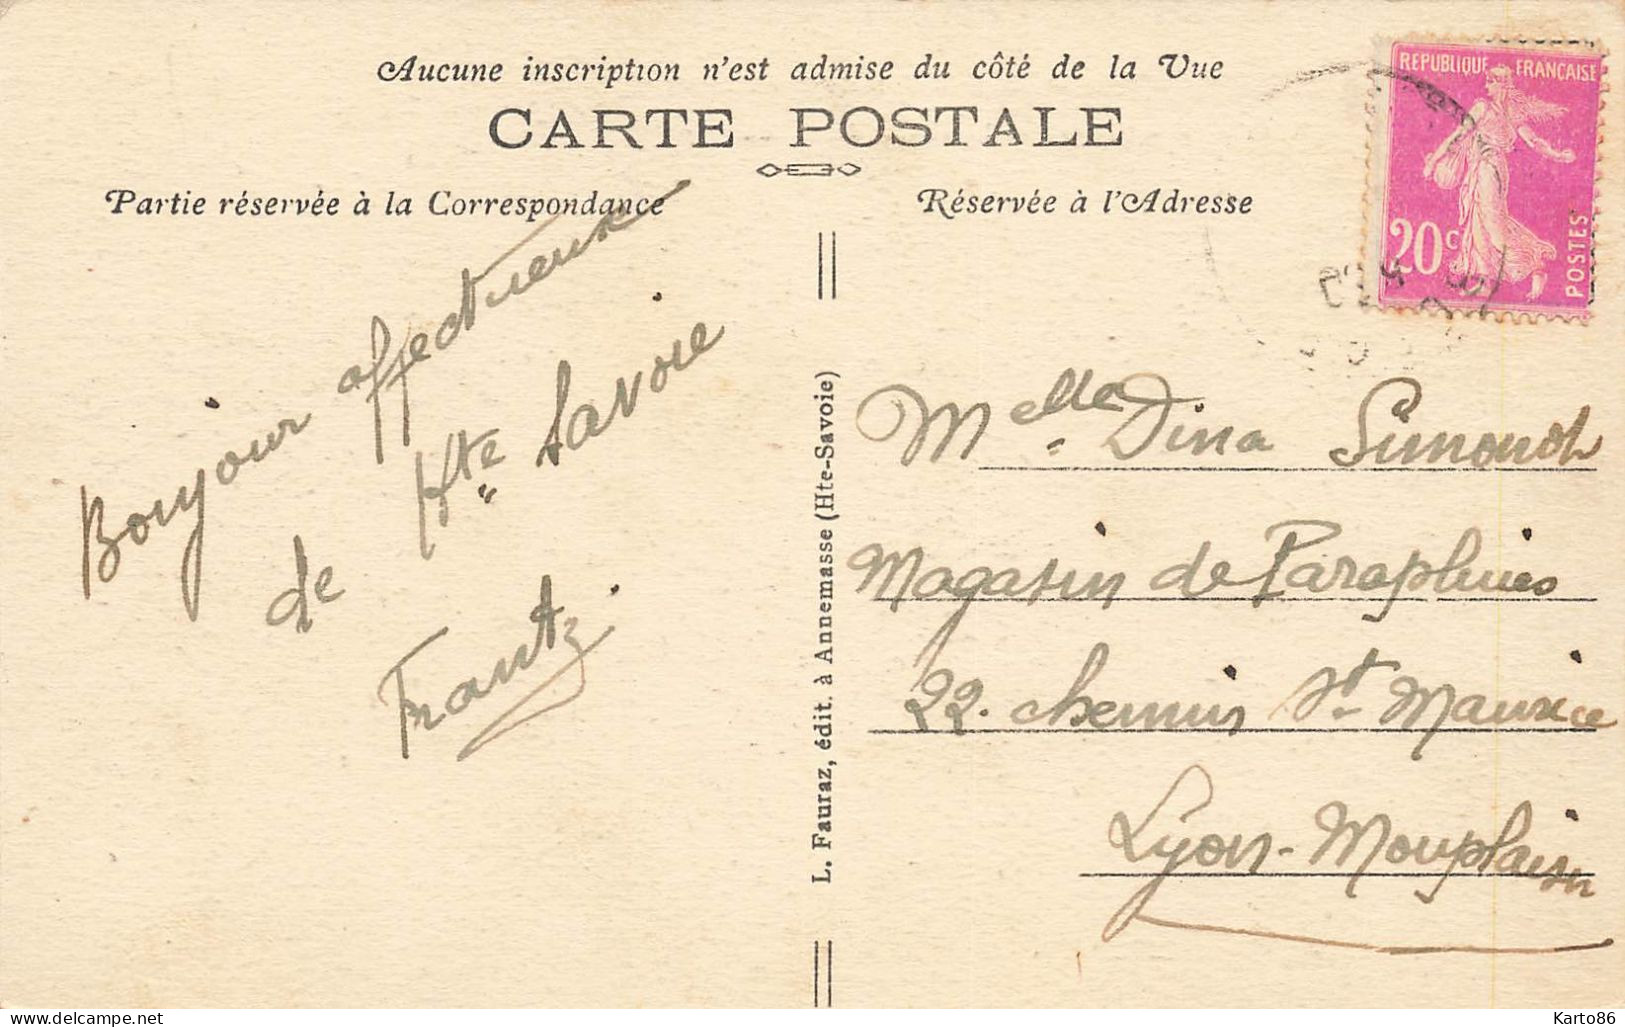 Aucune inscription n'est admise du côté de la Vue
CARTE POSTALE
Partie réservée à la Correspondance
Réservée à l'Adresse
REPUBLIQUE FRANÇAISE
20c
POSTES
Bonjour affectueux
de Hte Savoie
Frantz.
L. Fauraz, édit. à Annemasse (Hte-Savoie)
Melle Dina Simond
Magasin de Parapluies
22. chemin St Maurice
Lyon-Monplaisir
delcampe.net
Karto86